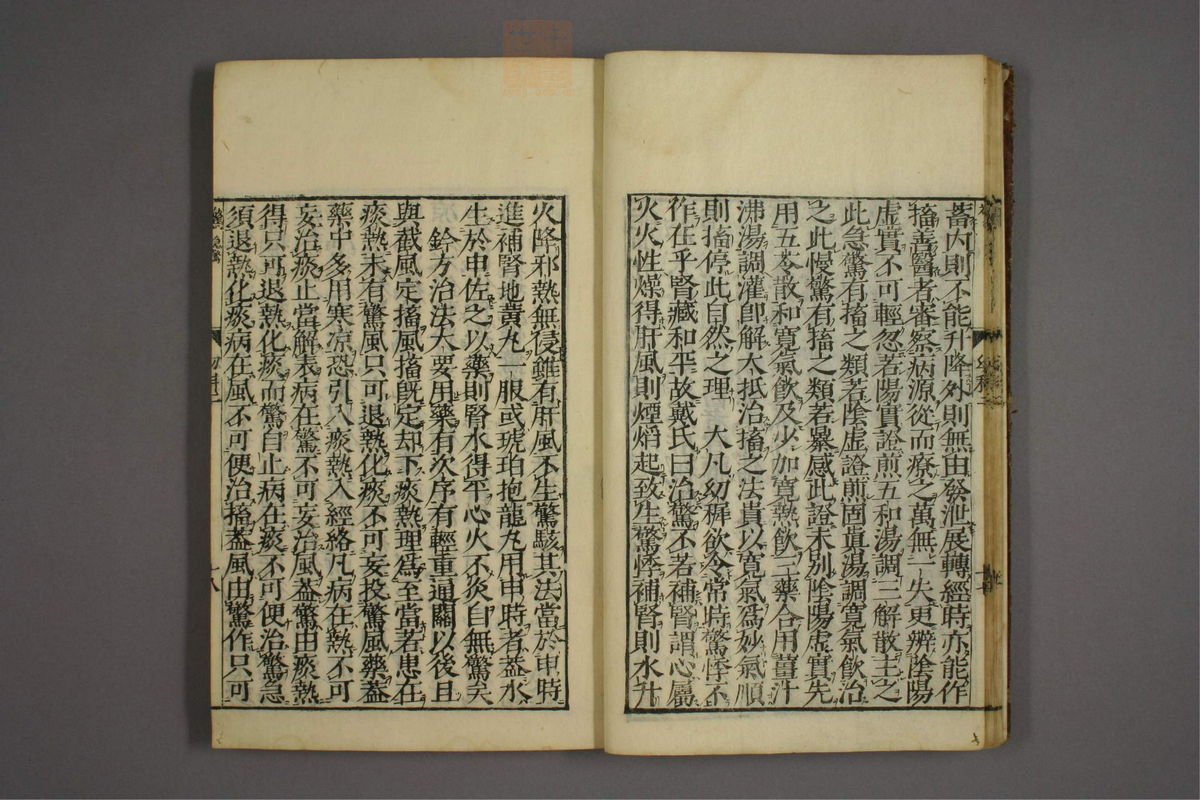 蓄内則不能升降外則無由發泄展轉經時亦能作
搐善醫者審察病源從而療之萬無一失更辨陰陽
虚實不可輕忽若陽實證煎五和湯調三解散主之
此急驚有搐之類若陰虚證煎固眞湯調寛氣飲治
之此慢驚有搐之類若暴感此證未別陰陽虚實先
用五苓散和寛氣飲及少加寛熱飲三藥合用薑汁
沸湯調灌卽解大抵治搐之法貴以寛氣爲妙氣順
則搐停此自然之理　大凡幼穉欲令常時驚悸不
作在乎腎藏和平故戴氏曰治驚不若補腎謂心屬
火火性燥得肝風則煙焰起致生驚悸補腎則水升
火降邪熱無侵雖有肝風不生驚駭其法當於申時
進補腎地黄丸一服或琥珀抱龍丸用申時者葢水
生於申佐之以藥則腎水得平心火不炎自無驚矣
鈐方治法大要用藥有次序有輕重通關以後且
與截風定搐風搐旣定却下痰熱理爲至當若患在
痰熱未有驚風只可退熱化痰不可妄投驚風藥葢
藥中多用寒凉恐引入痰熱入經絡凡病在熱不可
妄治痰止當解表病在驚不可妄治風葢驚由痰熱
得只可退熱化痰而驚自止病在痰不可便治驚急
須退熱化痰病在風不可便治搐葢風由驚作只可